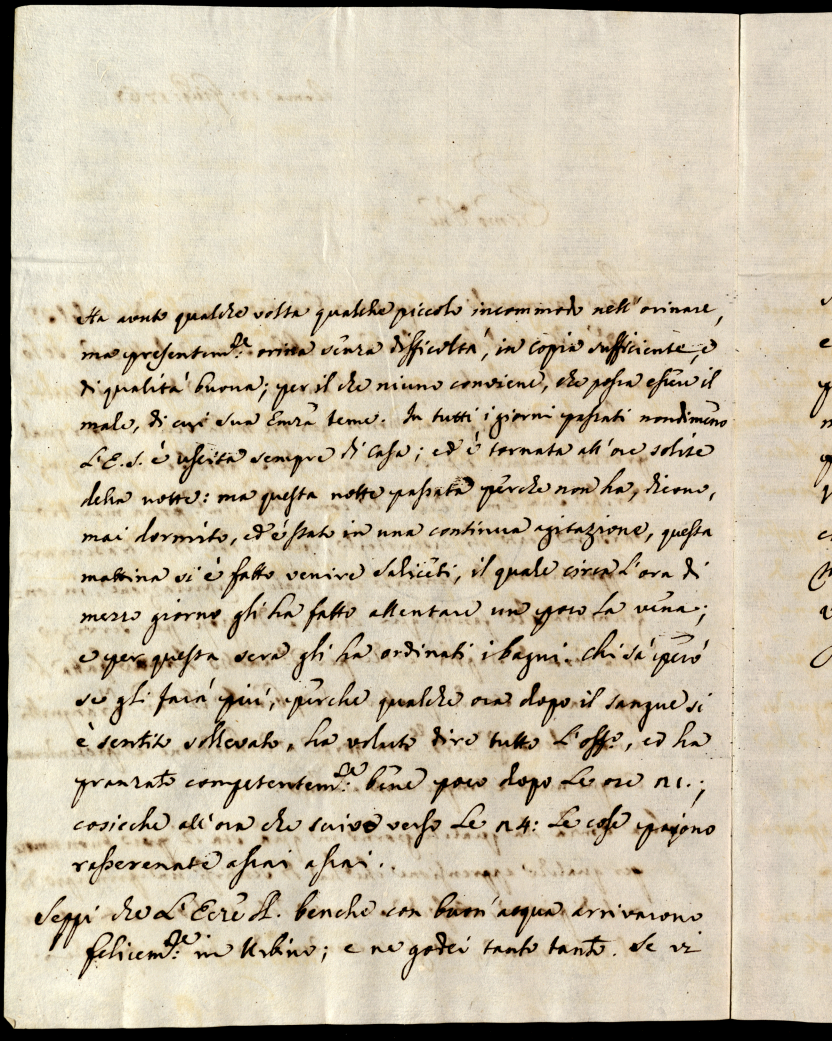 Ha avuto qualche volta qualche piccolo incommodo nell'orinare,
ma presentem.te orina senza difficoltà, in copia sufficiente, e
di qualità buona; per il che niuno conviene, che possa essere il
male, di cui sua Emza teme. In tutti i giorni passati nondimeno
L'E. S. è uscita sempre di casa; ed è tornata all'ore solite
della notte: ma questa notte passata perche non ha, dicono,
mai dormito, ed è stato in una continua agitazione, questa
mattina si è fatto venire Saliceti, il quale circa L'ora di
mezzo giorno gli ha fatto allentare un poco la vena;
e per questa sera gli ha ordinati i bagni. Chi sà però
se gli farà più, perche qualche ora dopo il sangue si
è sentito sollevato, ha voluto dire tutto L'off.o, ed ha
pranzato competentem.te bene poco dopo Le ore 21.;
cosicche all'ora che scrivo verso Le 24: Le cose pajono
rasserenate assai assai.
Seppi che L'Ecce VV. benche con buon'acqua arrivarono
felicem.te in Urbino; e ne godei tanto tanto. Se vi